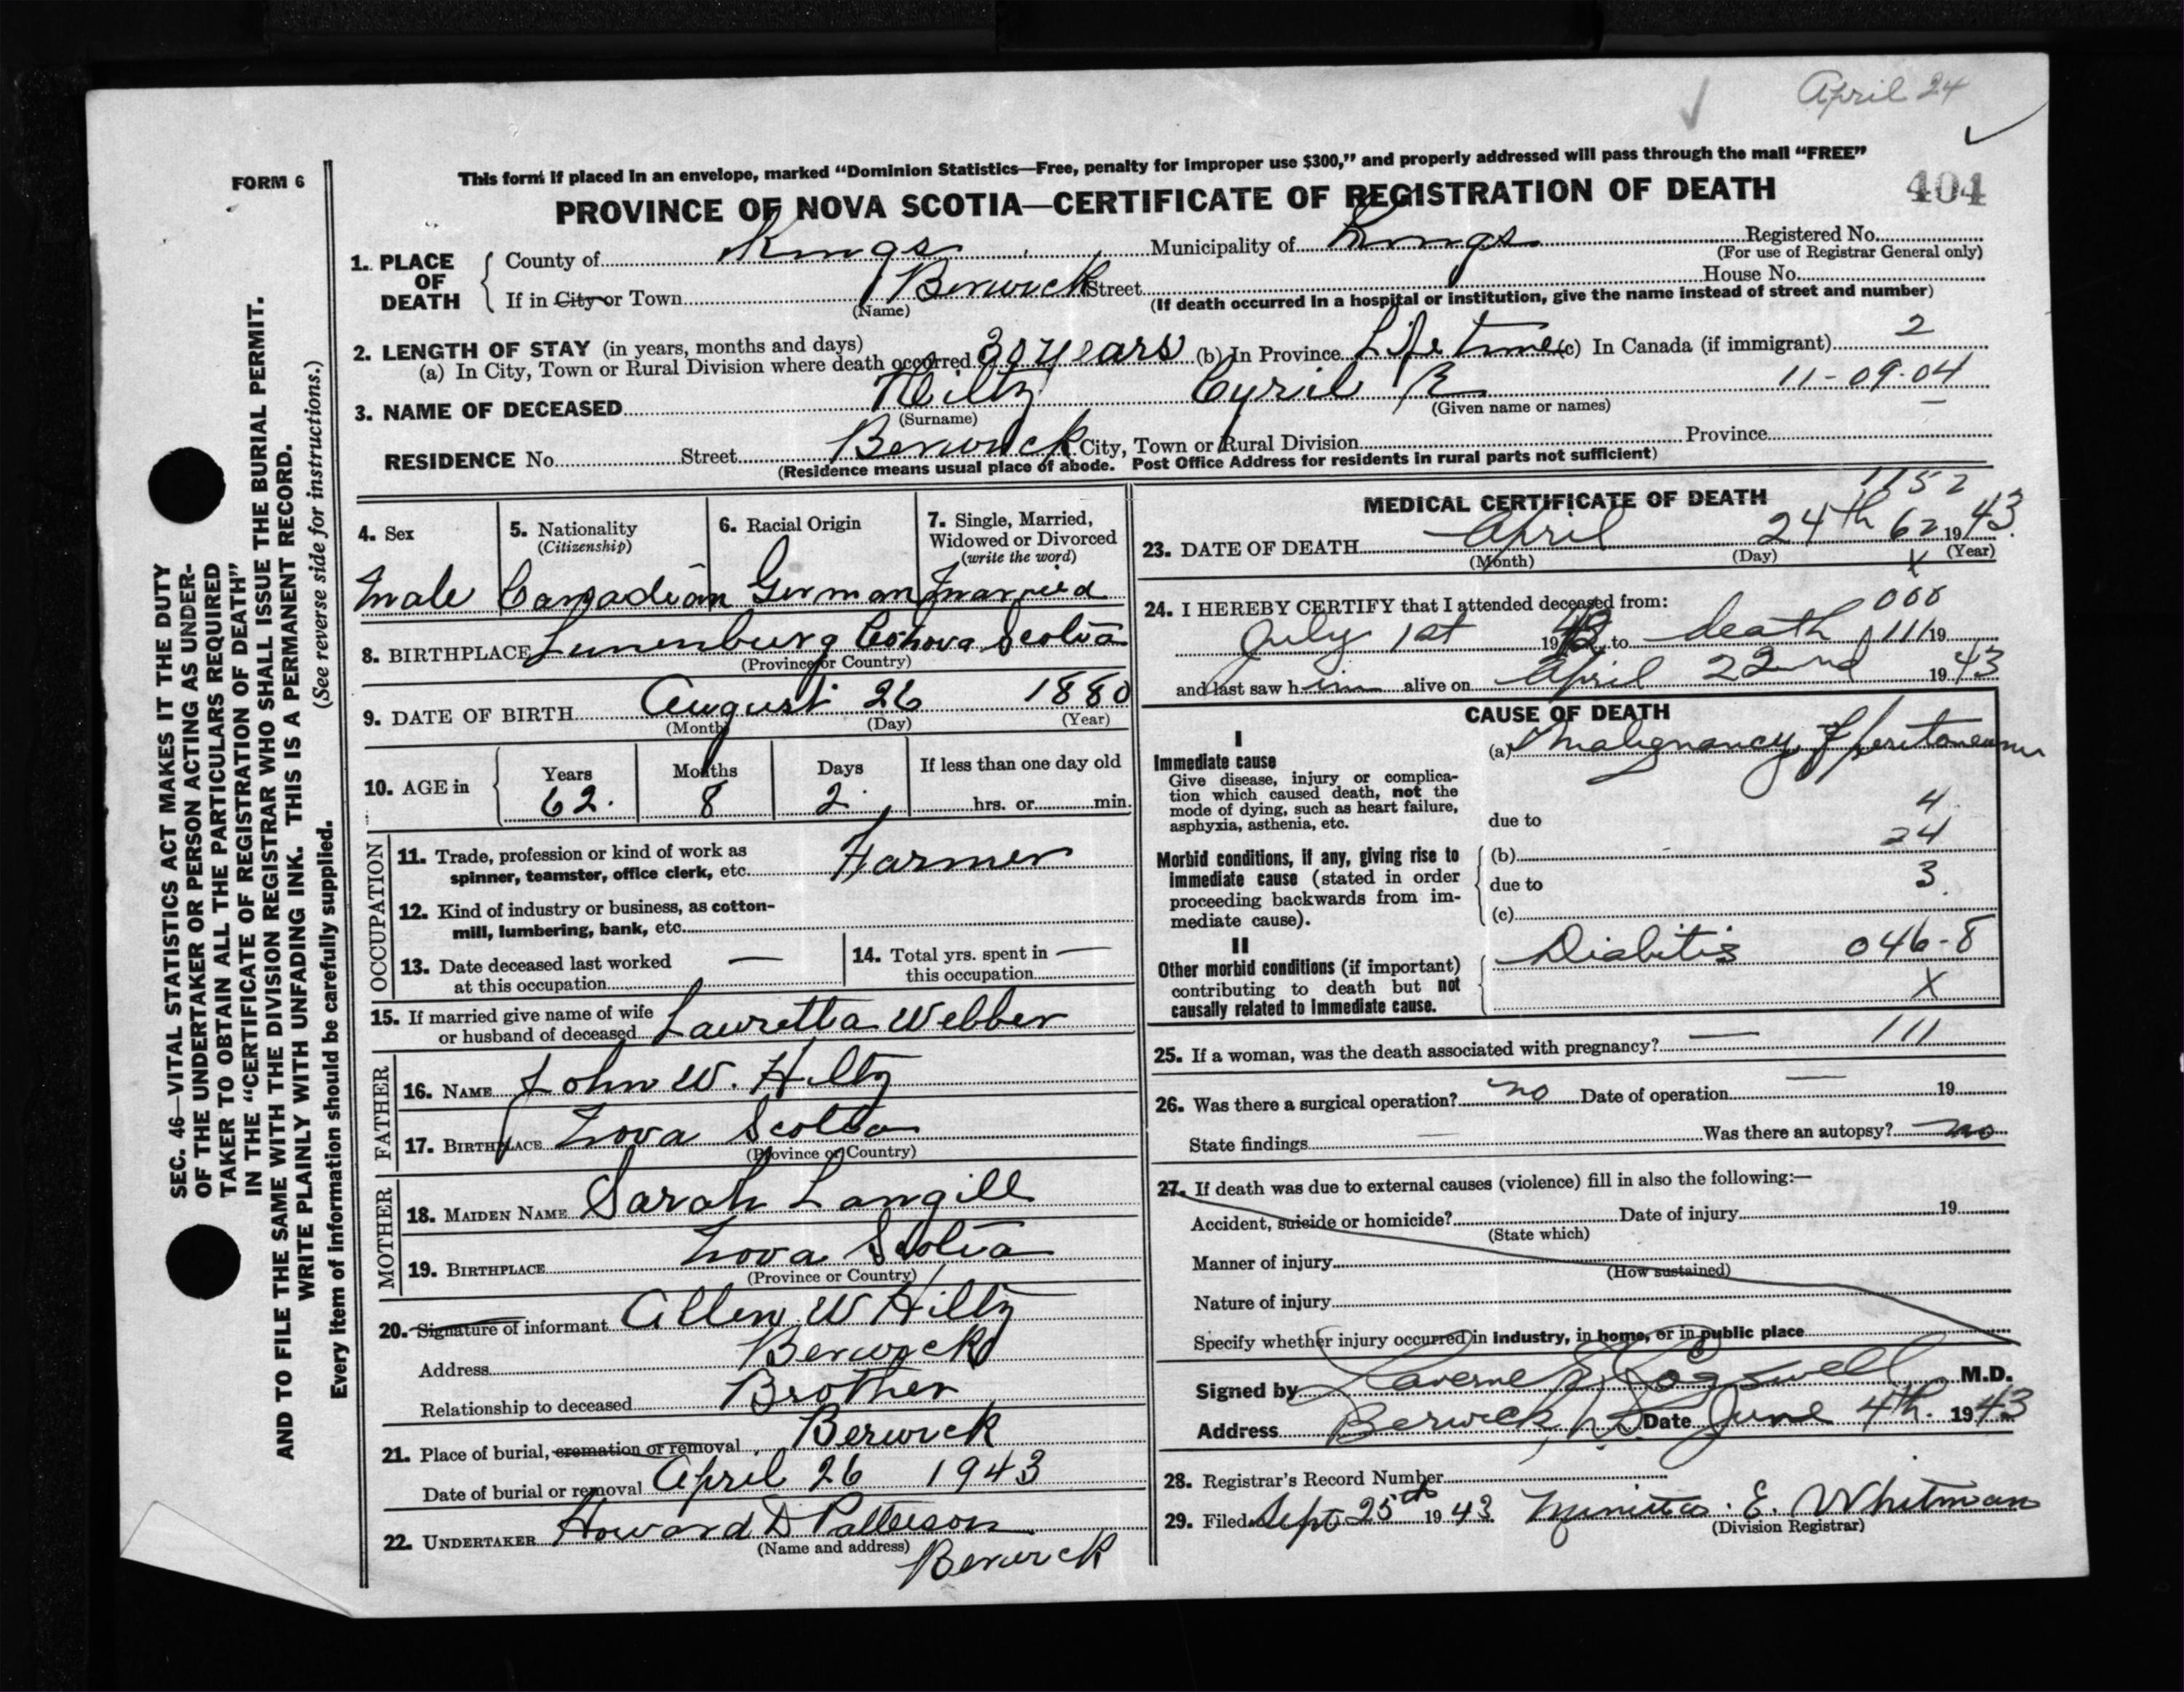 April 24
FORM 6
This form if placed in an envelope, marked "Dominion Statistics—Free, penalty for improper use $300," and properly addressed will pass through the mail "FREE"
PROVINCE OF NOVA SCOTIA—CERTIFICATE OF REGISTRATION OF DEATH
404
1. PLACE OF DEATH
County of Kings Municipality of Kings Registered No.
(For use of Registrar General only)
If in City or Town Berwick Street House No.
(Name) (If death occurred in a hospital or institution, give the name instead of street and number)
2. LENGTH OF STAY (in years, months and days)
(a) In City, Town or Rural Division where death occurred 30 years (b) In Province Life time (c) In Canada (if immigrant) 2
3. NAME OF DECEASED Hiltz Cyril R 11-09-04
(Surname) (Given name or names)
RESIDENCE No. Street Berwick City, Town or Rural Division Province
(Residence means usual place of abode. Post Office Address for residents in rural parts not sufficient)
4. Sex
Male
5. Nationality
(Citizenship)
Canadian
6. Racial Origin
German
7. Single, Married,
Widowed or Divorced
(write the word)
Married
8. BIRTHPLACE Lunenburg Co Nova Scotia
(Province or Country)
9. DATE OF BIRTH August 26 1880
(Month) (Day) (Year)
10. AGE in
Years Months Days If less than one day old
62. 8 2 hrs. or min.
OCCUPATION
11. Trade, profession or kind of work as
spinner, teamster, office clerk, etc. Farmer
12. Kind of industry or business, as cotton-
mill, lumbering, bank, etc.
13. Date deceased last worked
at this occupation —
14. Total yrs. spent in
this occupation —
15. If married give name of wife
or husband of deceased Lauretta Webber
FATHER
16. NAME John W. Hiltz
17. BIRTHPLACE Nova Scotia
(Province or Country)
MOTHER
18. MAIDEN NAME Sarah Langill
19. BIRTHPLACE Nova Scotia
(Province or Country)
20. Signature of informant Allen W Hiltz
Address Berwick
Relationship to deceased Brother
21. Place of burial, cremation or removal Berwick
Date of burial or removal April 26 1943
22. UNDERTAKER Howard D Patterson
(Name and address)
Berwick
1152
MEDICAL CERTIFICATE OF DEATH
23. DATE OF DEATH April 24th 62 1943
(Month) (Day) (Year)
X
24. I HEREBY CERTIFY that I attended deceased from: 000
July 1st 19 to death 111 19
and last saw him alive on April 22nd 1943
CAUSE OF DEATH
I
Immediate cause
Give disease, injury or complica-
tion which caused death, not the
mode of dying, such as heart failure,
asphyxia, asthenia, etc.
(a) Malignancy of peritoneum
4
due to
Morbid conditions, if any, giving rise to
immediate cause (stated in order
proceeding backwards from im-
mediate cause).
(b) 24
due to 3
(c)
II
Other morbid conditions (if important)
contributing to death but not
causally related to immediate cause.
Diabitis 046-8
X
25. If a woman, was the death associated with pregnancy? — 111
26. Was there a surgical operation? no Date of operation — 19
State findings — Was there an autopsy? no
27. If death was due to external causes (violence) fill in also the following:—
Accident, suicide or homicide? Date of injury 19
(State which)
Manner of injury
(How sustained)
Nature of injury
Specify whether injury occurred in industry, in home, or in public place
Signed by Laverne Cogswell M.D.
Address Berwick, N.S. Date June 4th. 1943
28. Registrar's Record Number
29. Filed Sept 25th 1943 E. Whitman
(Division Registrar)
SEC. 46—VITAL STATISTICS ACT MAKES IT THE DUTY
OF THE UNDERTAKER OR PERSON ACTING AS UNDER-
TAKER TO OBTAIN ALL THE PARTICULARS REQUIRED
IN THE "CERTIFICATE OF REGISTRATION OF DEATH"
AND TO FILE THE SAME WITH THE DIVISION REGISTRAR WHO SHALL ISSUE THE BURIAL PERMIT.
WRITE PLAINLY WITH UNFADING INK. THIS IS A PERMANENT RECORD.
(See reverse side for instructions.)
Every item of information should be carefully supplied.